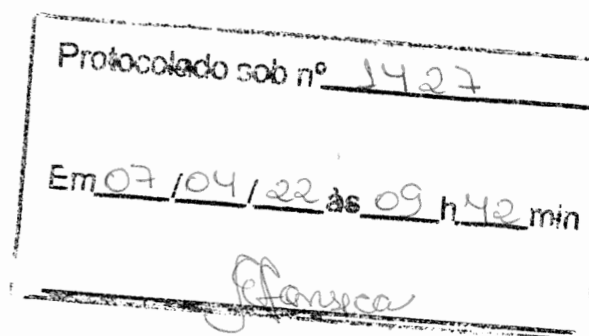 Protocolado sob nº 1427
Em 07/04/22 às 09 h 42 min
Fonseca